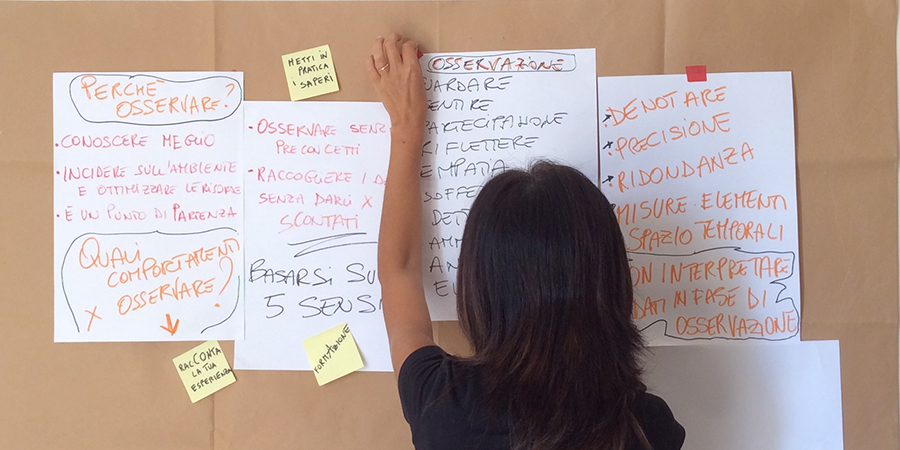 PERCHÈ
OSSERVARE?
• CONOSCERE MEGLIO
• INCIDERE SULL'AMBIENTE
E OTTIMIZZARE LE RISORSE
• È UN PUNTO DI PARTENZA
QUALI
COMPORTAMENTI
X OSSERVARE?
METTI IN
PRATICA
I SAPERI
• OSSERVARE SENZA
PRECONCETTI
• RACCOGLIERE I
SENZA DARLI X
SCONTATI
BASARSI SU
5 SENSI
RACCONTA
LA TUA
ESPERIENZA
FORMAZIONE
OSSERVAZIONE
GUARDARE
SENTIRE
PARTECIPAZIONE
RIFLETTERE
EMPATIA
• DENOTARE
• PRECISIONE
• RIDONDANZA
MISURE ELEMENTI
SPAZIO TEMPORALI
NON INTERPRETARE
DATI IN FASE DI
OSSERVAZIONE